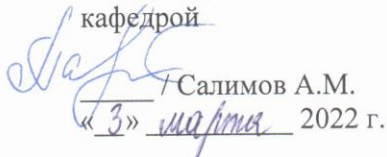 кафедрой
/ Салимов А.М.
«3» марта 2022 г.